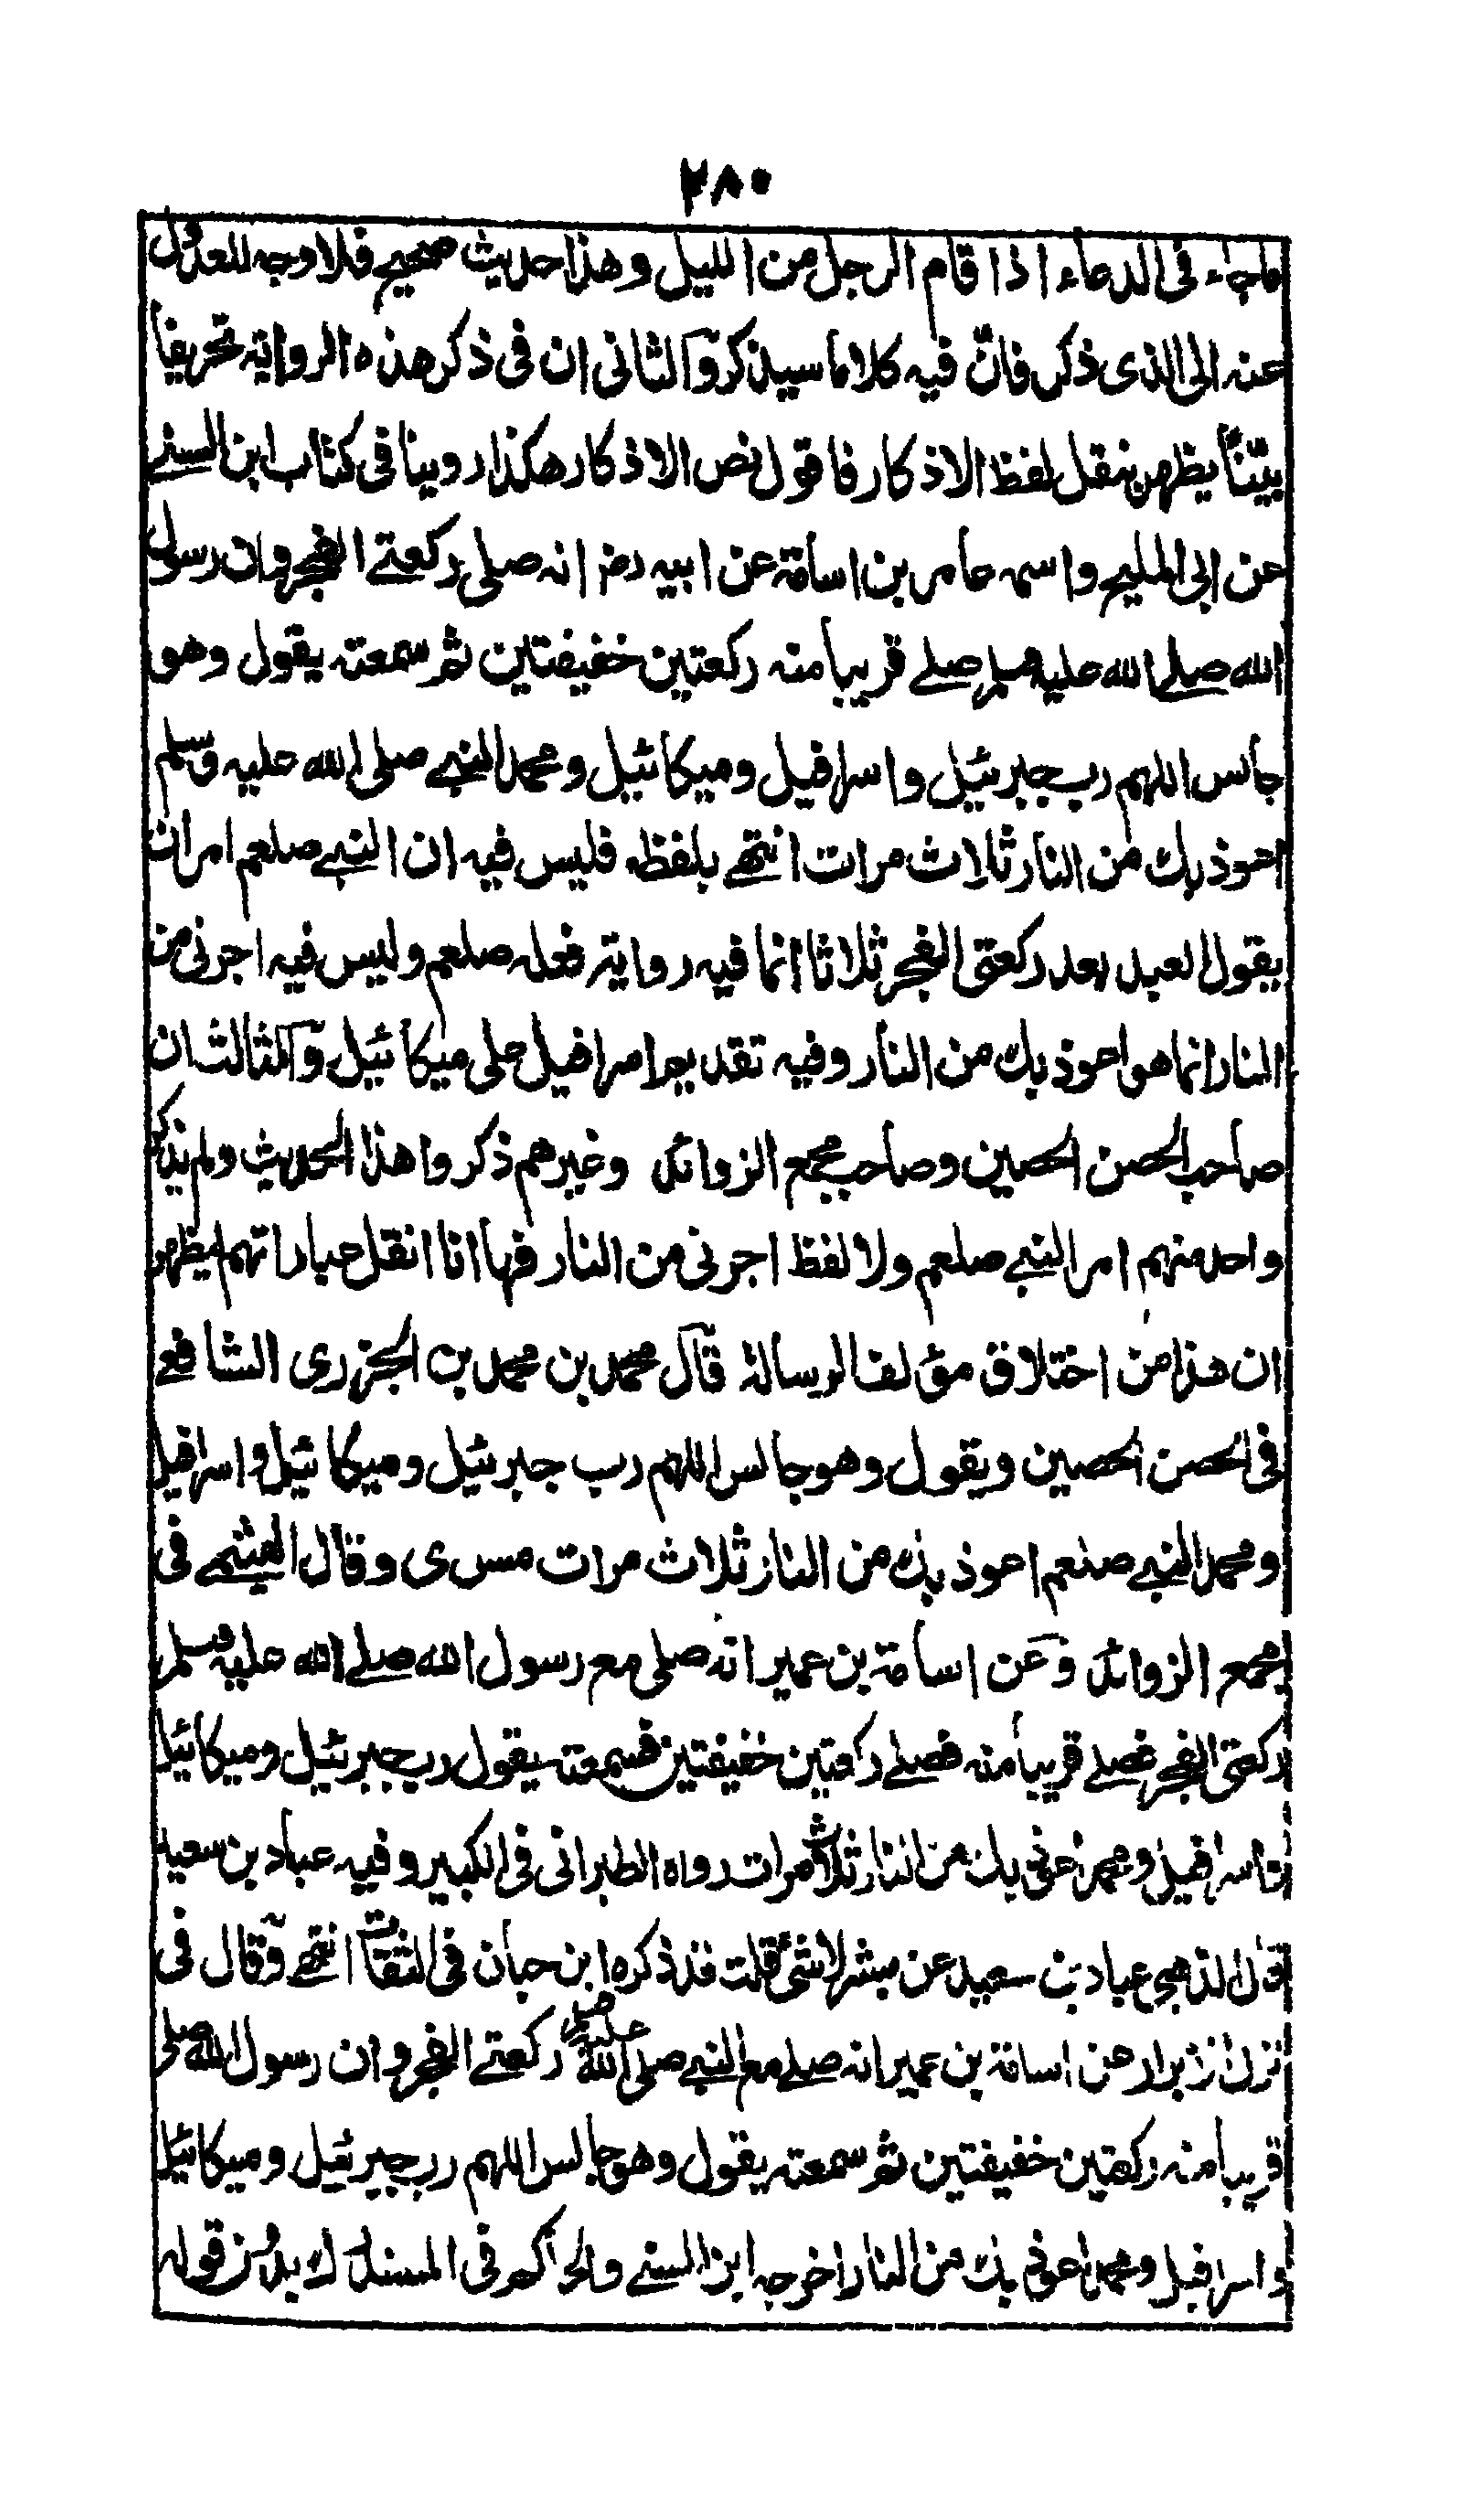 ۲۸۰
ماجاء في الدعاء اذا قام الرجل من الليل وهذا حديث صحيح فلا وجه للعدول
عنه الى الذى ذكر فانّ فيه كلاما سيذكر والثانى ان فى ذكر هذه الرواية تحريفاً
بيّناً يظهر بنقل لفظ الاذكار فاقول نص الاذكار هكذا روينا فى كتاب ابن السنے
عن ابى المليح واسمه عامر بن اسامة عن ابيه رض انه صلى ركعتے الفجر وان رسول
الله صلے الله عليه وسلم صلے قريباً منه ركعتين خفيفتين ثم سمعته يقول وهو
جالس اللهم رب جبرئيل واسرافيل وميكائيل ومحمد النبے صلى الله عليه وسلم
اعوذ بك من النار ثلاث مرات انتهے بلفظه فليس فيه ان النبے صلعم امر ان
يقول العبد بعد ركعتى الفجر ثلاثا انما فيه رواية فعله صلعم وليس فيه اجرنى من
النار انما هو اعوذ بك من النار وفيه تقديم اسرافيل على ميكائيل والثالث ان
صاحب الحصن الحصين وصاحب مجمع الزوائد وغيرهم ذكروا هذا الحديث ولم يذكر
واحد منهم امر النبے صلعم ولا لفظ اجرنى من النار فها انا انقل عباراتهم ليظهر
ان هذا من اختلاق مؤلف الرسالة قال محمد بن محمد بن الجزرى الشافعے
فى الحصن الحصين ويقول وهو جالس اللهم رب جبرئيل وميكائيل واسرافيل
ومحمد النبے صلعم اعوذ بك من النار ثلاث مرات مس ى وقال الهيثمے فى
مجمع الزوائد وعن اسامة بن عمير انه صلى مع رسول الله صلے الله عليه وسلم
ركعتى الفجر فصلے قريباً منه فصلے ركعتين خفيفتين فسمعته يقول رب جبرئيل وميكائيل
واسرافيل ومحمد اعوذ بك من النار ثلاث مرات رواه الطبرانى فى الكبير وفيه عباد بن سعيد
قال الذهبى عباد بن سعيد عن مبشر لاشئ قلت قد ذكره ابن حبان فى الثقات انتهے وقال فى
نزل الابرار عن اسامة بن عمير انه صلے مع النبے صلى الله عليه وسلم ركعتے الفجر وان رسول الله صلى
قريبا منه ركعتين خفيفتين ثم سمعته يقول وهو جالس اللهم رب جبرئيل وميكائيل
واسرافيل ومحمد اعوذ بك من النار اخرجه ابن السنے والحاكم فى المستدرك قوله